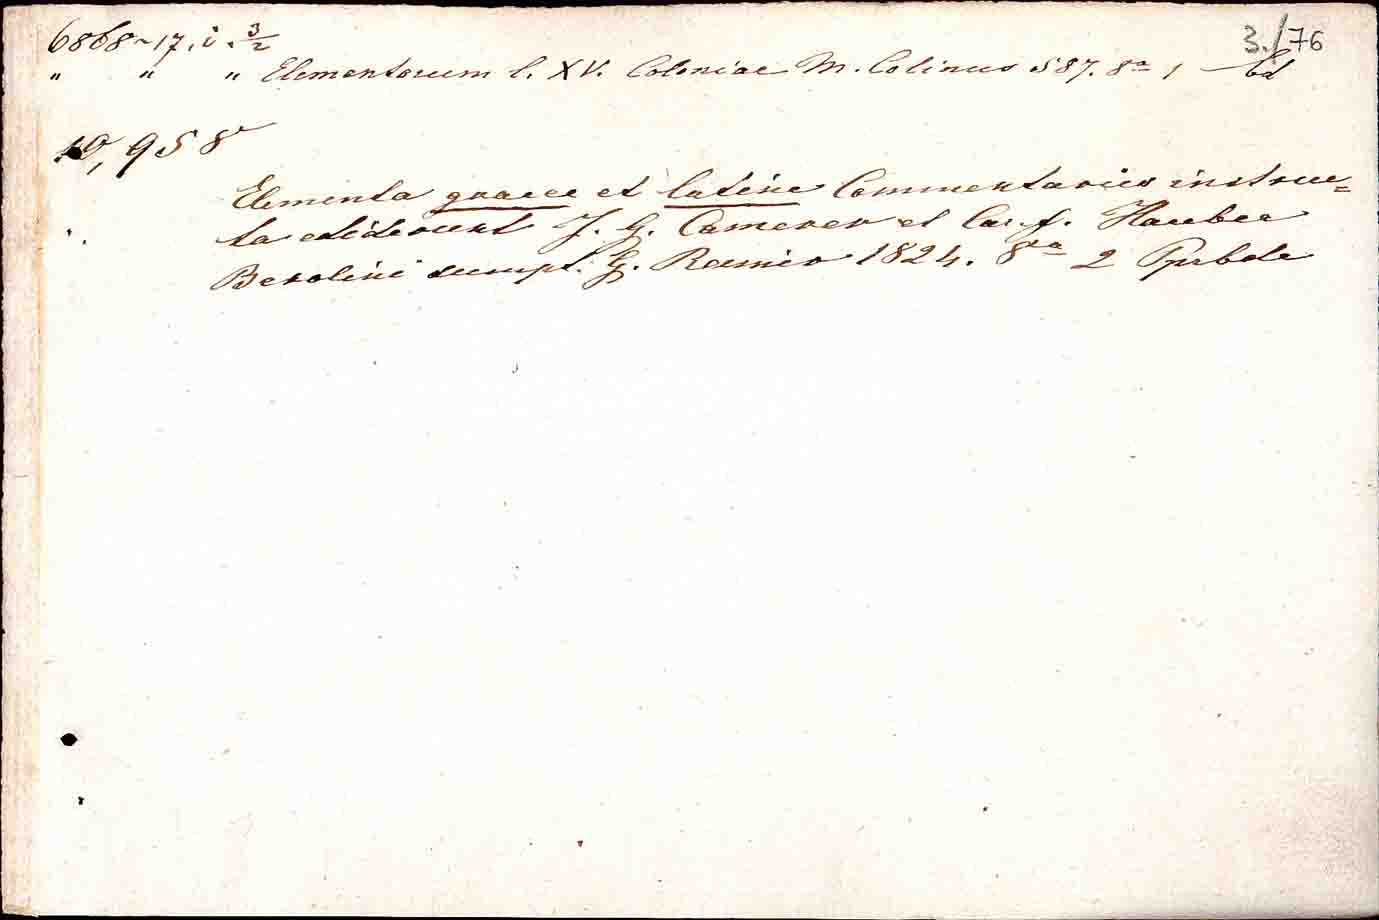 6868~17. i. 3/2
3./76
" " " Elementorum l. XV. Coloniae M. Colinus 587. 8º 1 – bd
10,958
Elementa graece et latine Commentariis instruc=
ta ediderunt J. G. Camerer et Car. f. Hauber
Berolini sumpt. G. Reimer 1824. 8va 2 Ppbde